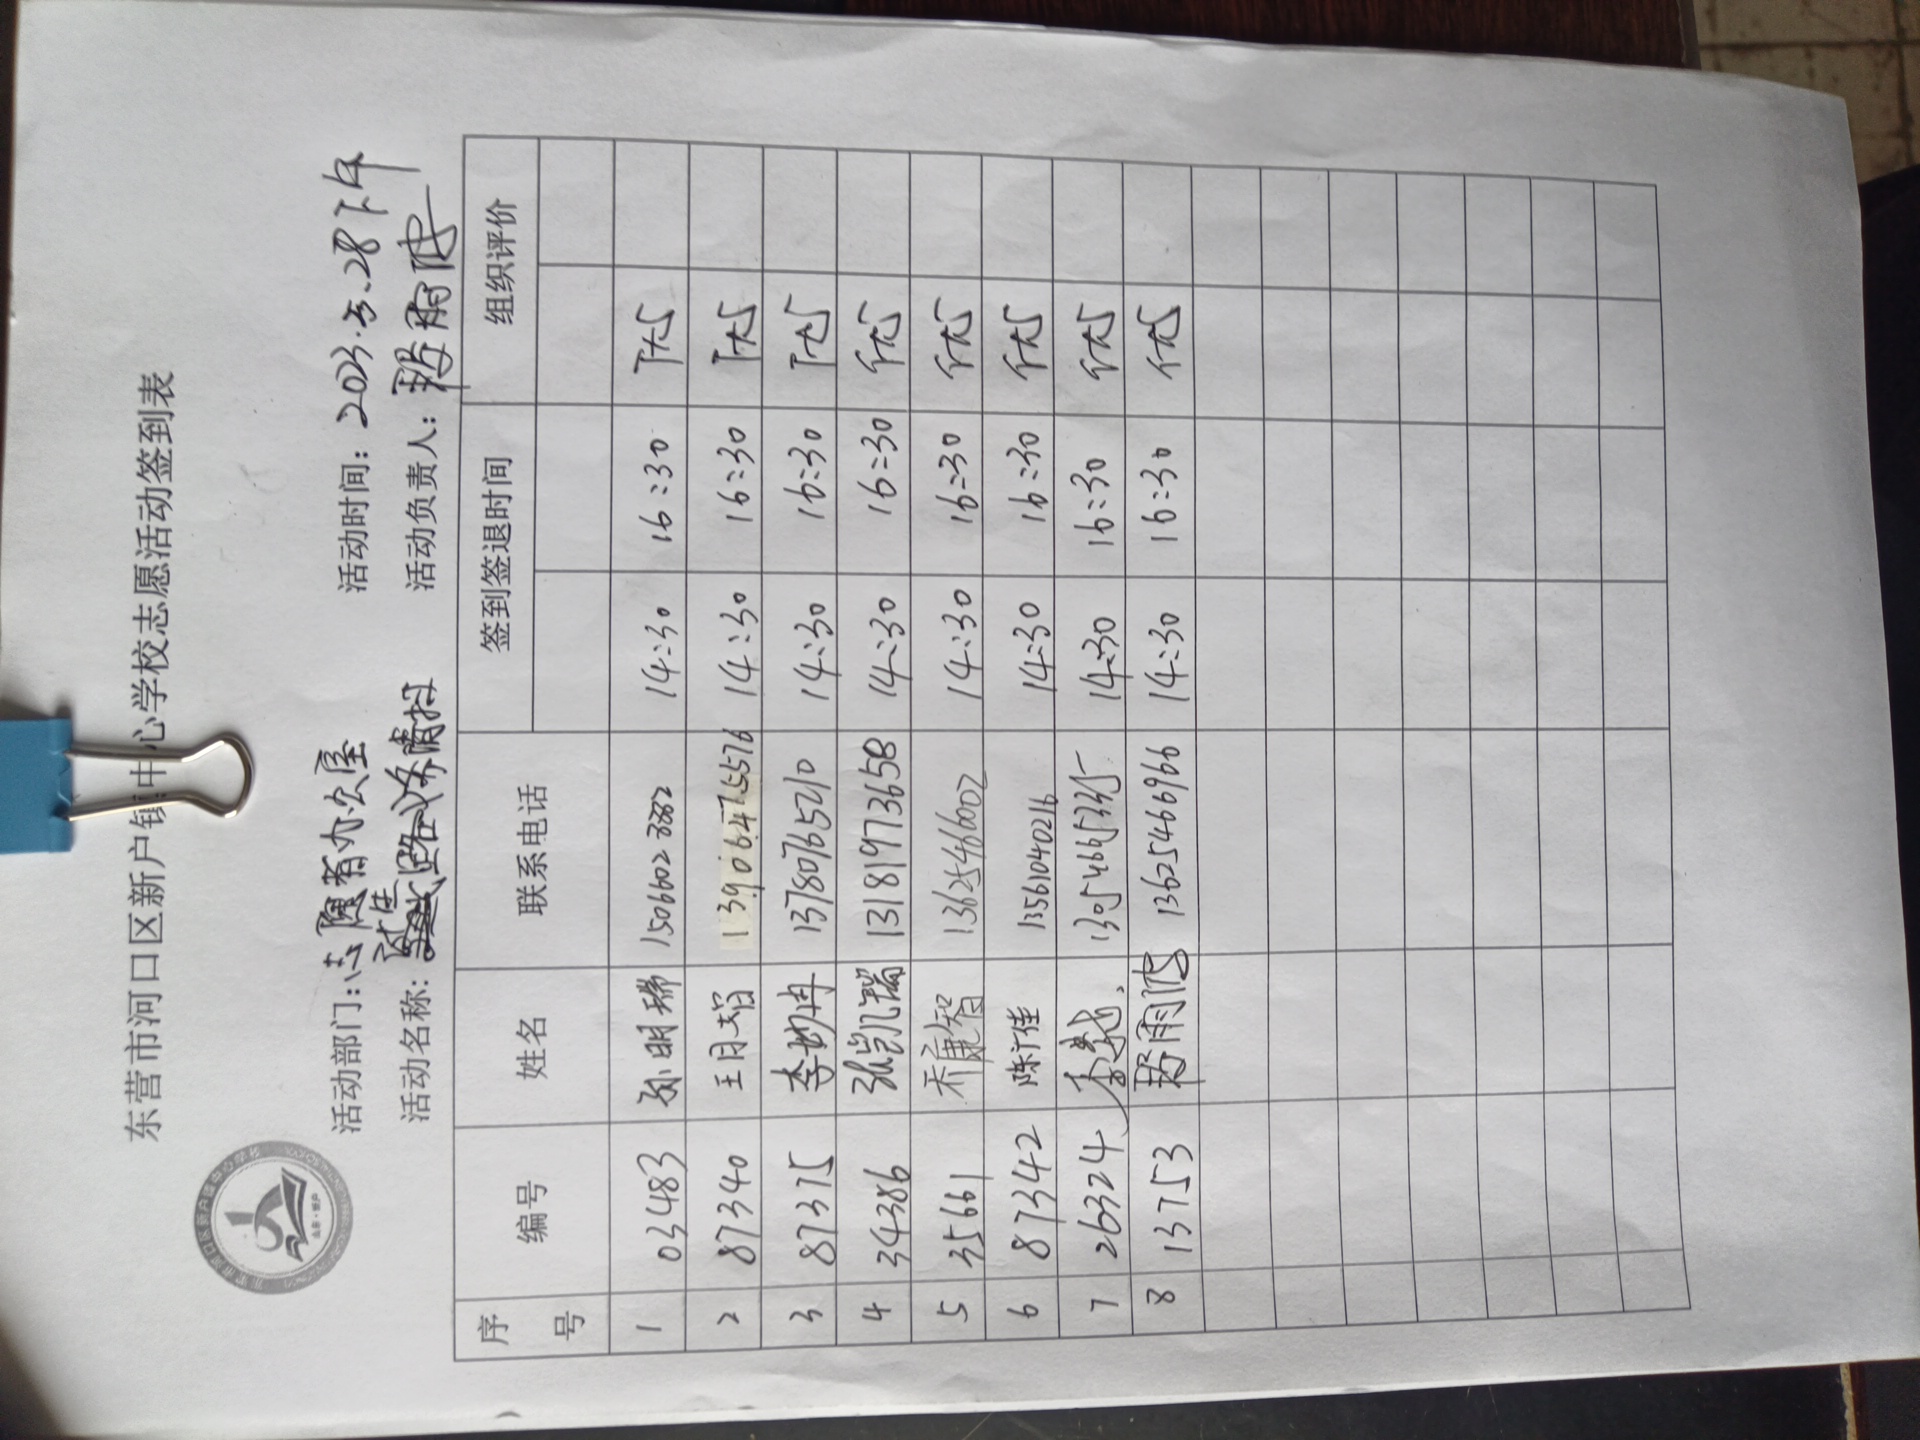 东营市河口区新户镇中心学校志愿活动签到表
活动部门：志愿者办公屋 活动时间：2023.5.28下午
活动名称： 清扫 活动负责人：
序号 编号 姓名 联系电话 签到签退时间 组织评价
1 03483 孙明瑞 15066023882 14:30 16:30 优
2 87340 王月 13906475576 14:30 16:30 优
3 87375 李妙冉 13780765210 14:30 16:30 优
4 34386 张凯瑞 13181973658 14:30 16:30 优
5 35661 乔康智 13625466002 14:30 16:30 优
6 87342 陈佳 13561040216 14:30 16:30 优
7 26324 14:30 16:30 优
8 13753 雨 13625466966 14:30 16:30 优